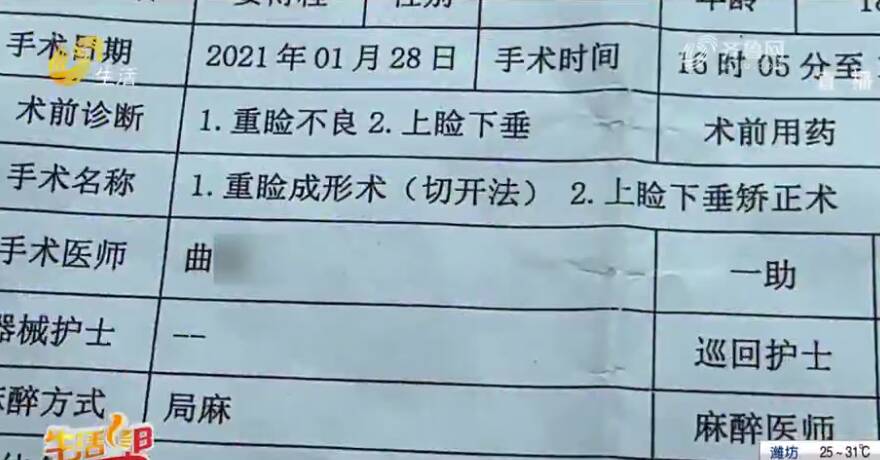 性别 年龄 18
手术日期 2021年01月28日 手术时间 16时05分至
生活 齐鲁网 直播
术前诊断 1.重睑不良2.上睑下垂 术前用药
手术名称 1.重睑成形术（切开法） 2.上睑下垂矫正术
手术医师 曲 一助
器械护士 -- 巡回护士
麻醉方式 局麻 麻醉医师
生活帮
潍坊 25~31℃